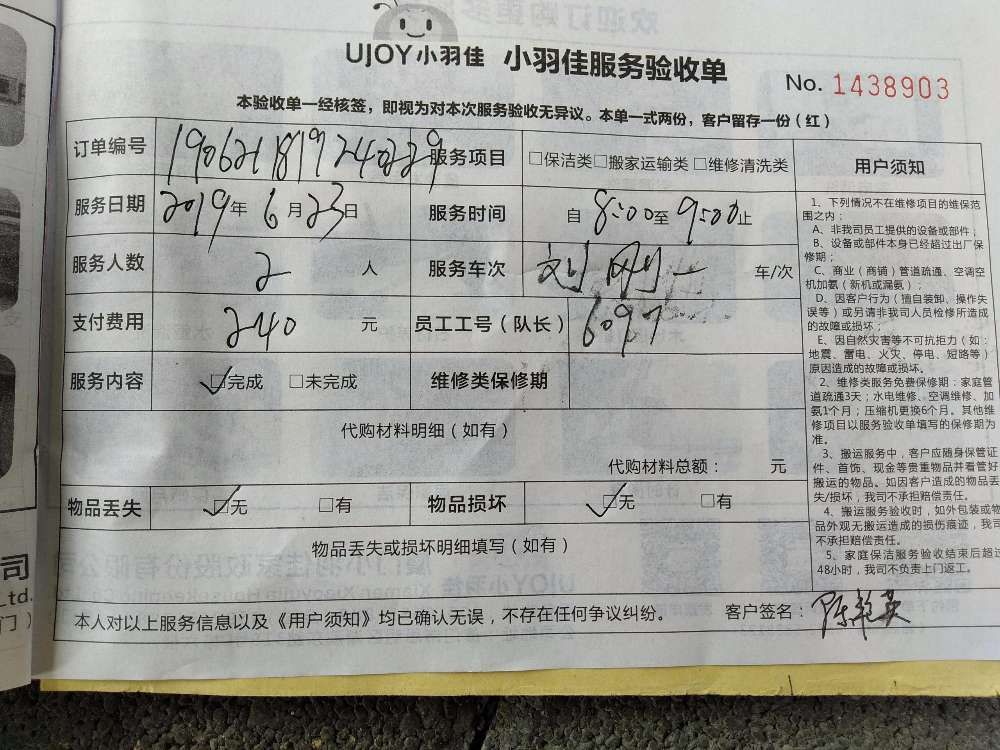 UJOY小羽佳 小羽佳服务验收单
No. 1438903
本验收单一经核签，即视为对本次服务验收无异议。本单一式两份，客户留存一份（红）
订单编号 服务项目 □保洁类□搬家运输类□维修清洗类
服务日期 2019年6月23日 服务时间 自8:00至9:00止
服务人数 2人 服务车次 车/次
支付费用 240元 员工工号（队长） 6097
服务内容 ☑完成 □未完成 维修类保修期
代购材料明细（如有）
代购材料总额： 元
物品丢失 ☑无 □有 物品损坏 ☑无 □有
物品丢失或损坏明细填写（如有）
本人对以上服务信息以及《用户须知》均已确认无误，不存在任何争议纠纷。 客户签名：
用户须知
1、下列情况不在维修项目的维保范
围之内：
A、非我司员工提供的设备或部件；
B、设备或部件本身已经超过出厂保
修期；
C、商业（商铺）管道疏通、空调空
机加氨（新机或漏氨）；
D、因客户行为（擅自装卸、操作失
误等）或另请非我司人员检修所造成
的故障或损坏；
E、因自然灾害等不可抗拒力（如：
地震、雷电、火灾、停电、短路等）
原因造成的故障或损坏。
2、维修类服务免费保修期：家庭管
道疏通3天；水电维修、空调维修、加
氨1个月；压缩机更换6个月。其他维
修项目以服务验收单填写的保修期为
准。
3、搬运服务中，客户应随身保管证
件、首饰、现金等贵重物品并看管好
搬运的物品。如因客户造成的物品丢
失/损坏，我司不承担赔偿责任。
4、搬运服务验收时，如外包装或物
品外观无搬运造成的损伤痕迹，我司
不承担赔偿责任。
5、家庭保洁服务验收结束后超过
48小时，我司不负责上门返工。
司
Ltd.
门）